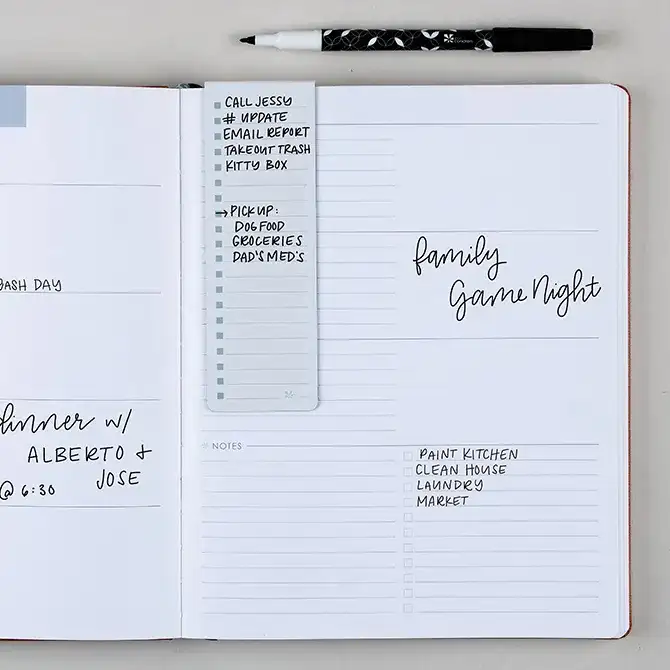 DAY
dinner w/
ALBERTO &
JOSE
@ 6:30
CALL JESSY
# UPDATE
EMAIL REPORT
TAKEOUT TRASH
KITTY BOX
→ PICK UP:
DOG FOOD
GROCERIES
DAD'S MED'S
family
Game Night
NOTES
PAINT KITCHEN
CLEAN HOUSE
LAUNDRY
MARKET